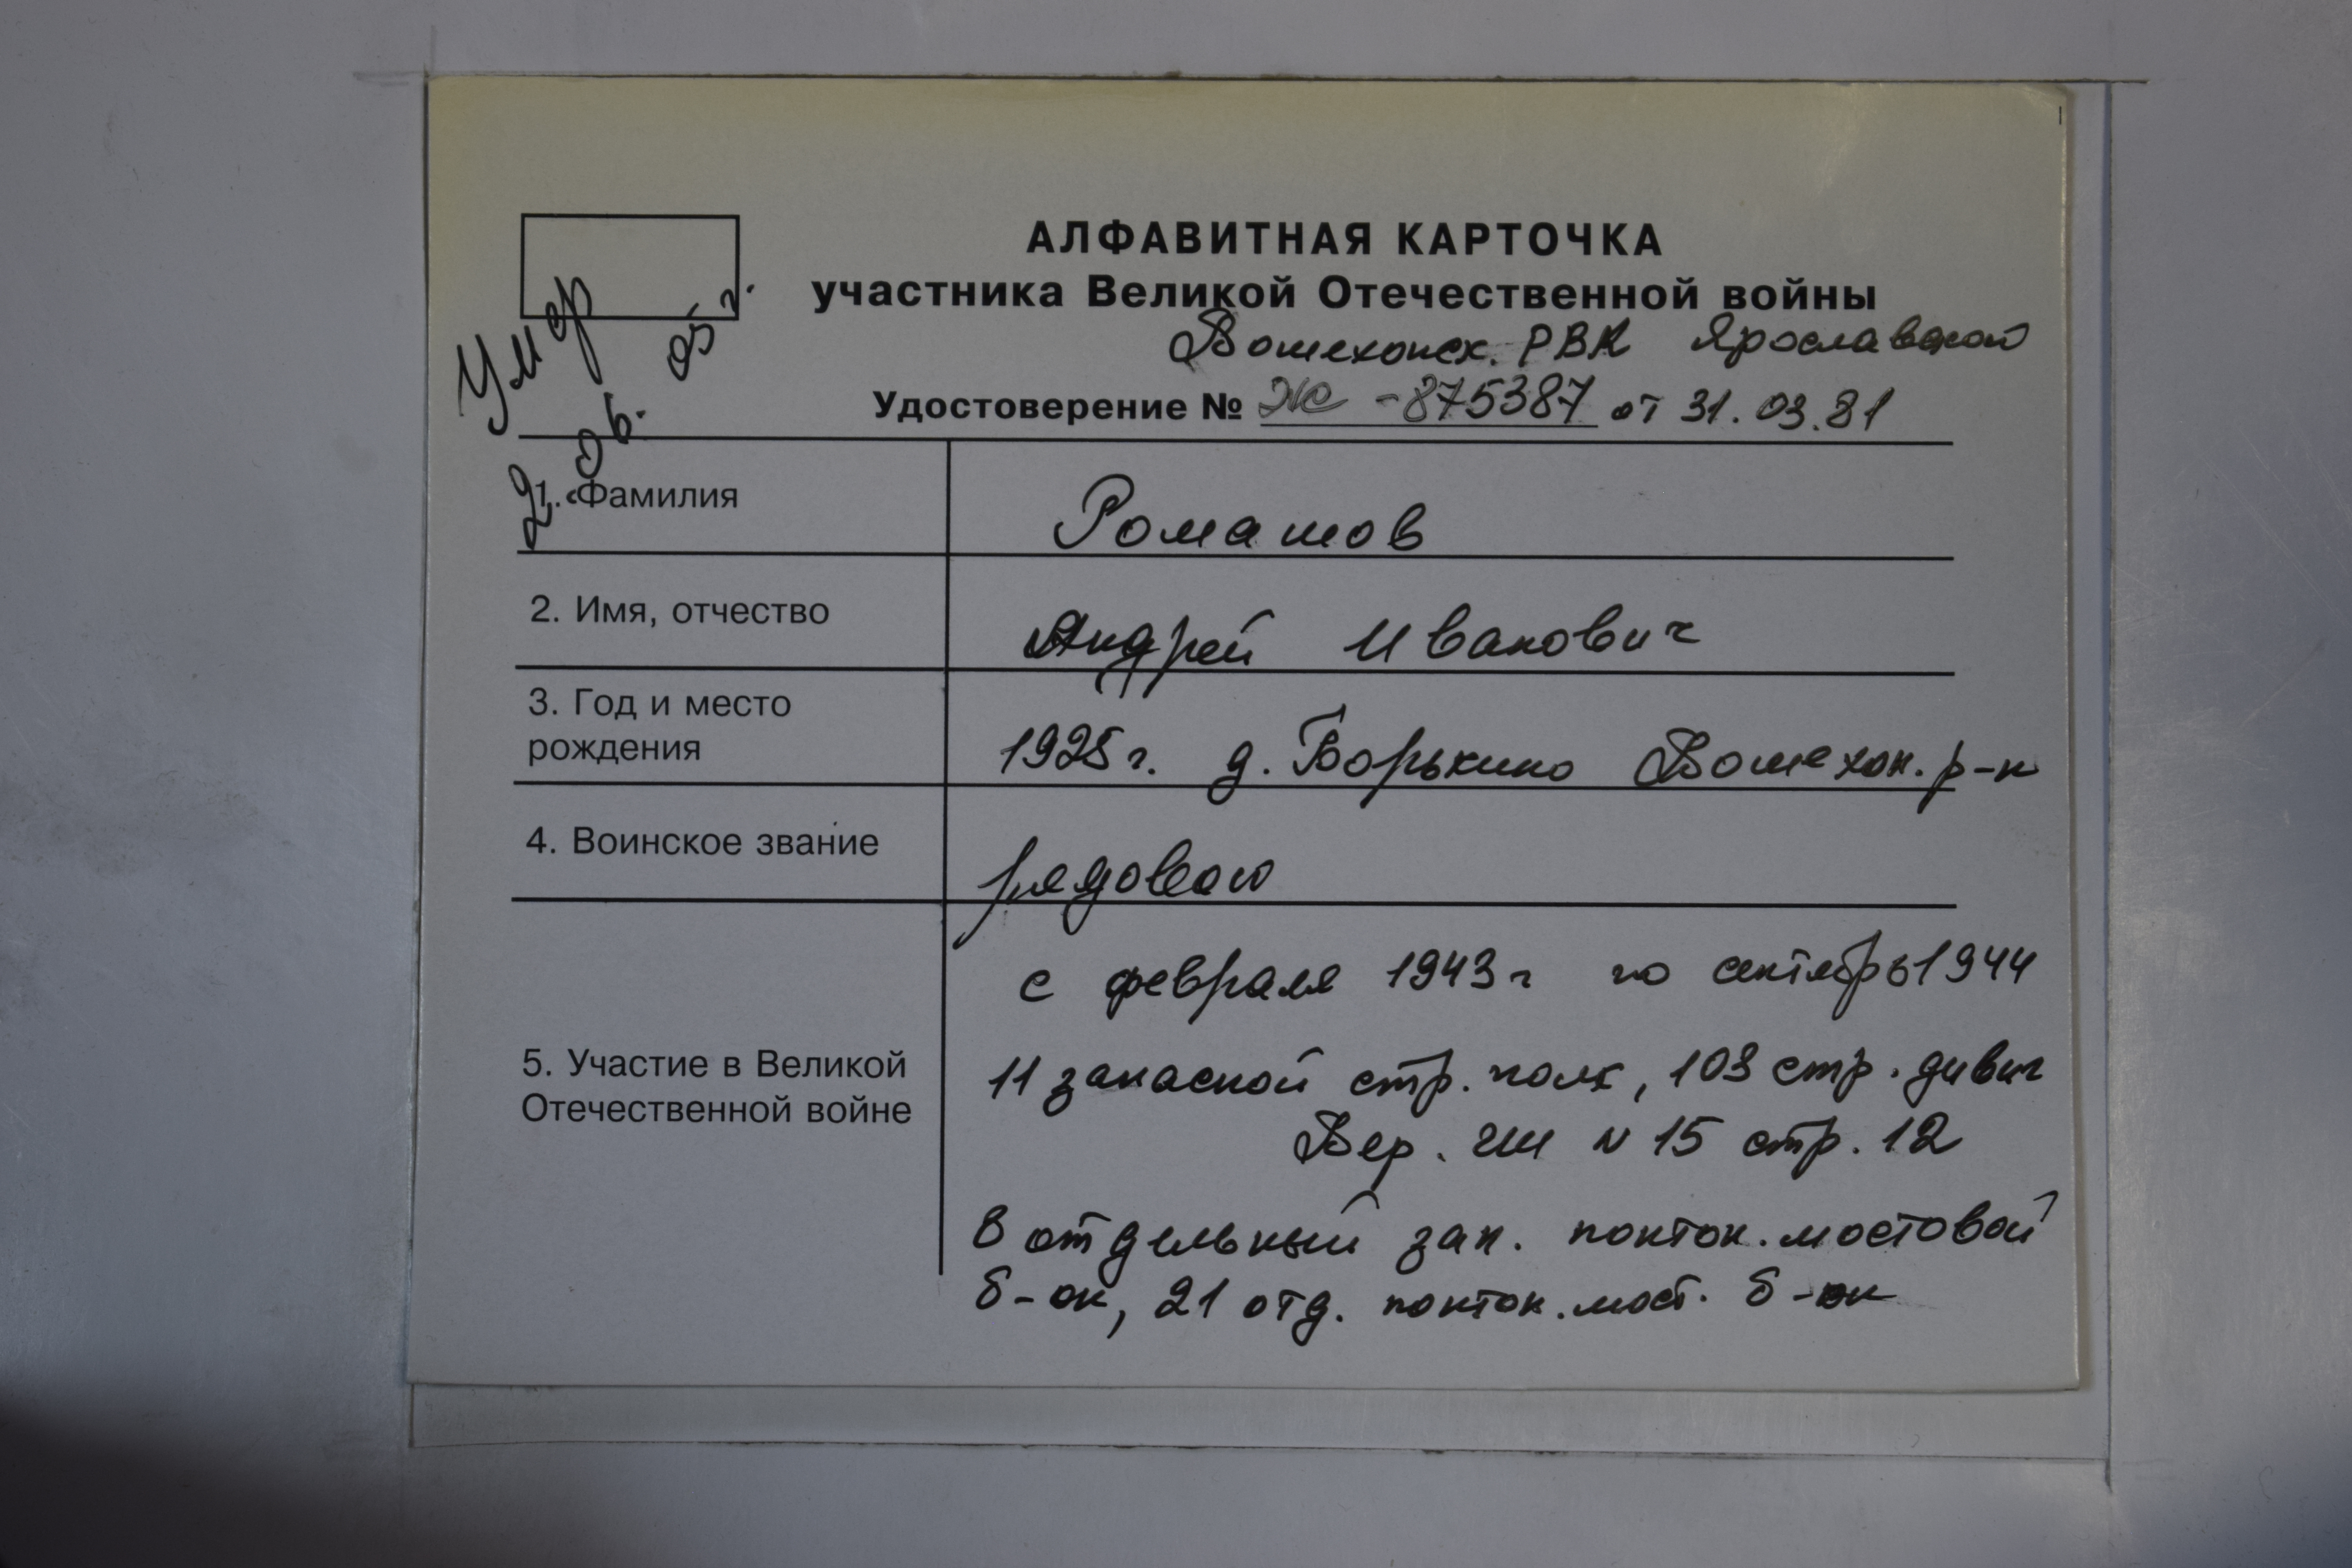 АЛФАВИТНАЯ КАРТОЧКА
участника Великой Отечественной войны
Пошехонск. РВК Ярославской
Удостоверение № Ж -875387 от 31.03.81
Умер
2. 06. 05 г.
1. Фамилия Ромашов
2. Имя, отчество Андрей Иванович
3. Год и место
рождения 1925 г. д. Борькино Пошехон. р-н
4. Воинское звание рядовой
с февраля 1943 г по сентябрь 1944
5. Участие в Великой
Отечественной войне
11 запасной стр. полк, 103 стр. дивиз
Вер. № 15 стр. 12
8 отдельный зап. понтон. мостовой
б-он, 21 отд. понтон. мост. б-он